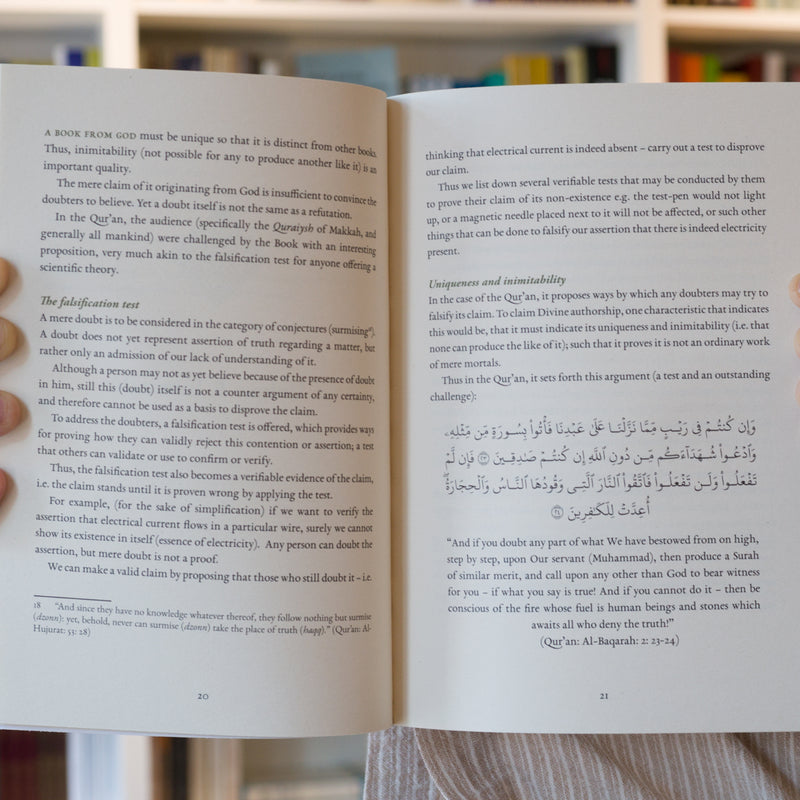 A BOOK FROM GOD must be unique so that it is distinct from other books.
Thus, inimitability (not possible for any to produce another like it) is an
important quality.
The mere claim of it originating from God is insufficient to convince the
doubters to believe. Yet a doubt itself is not the same as a refutation.
In the Qur'an, the audience (specifically the Quraiysh of Makkah, and
generally all mankind) were challenged by the Book with an interesting
proposition, very much akin to the falsification test for anyone offering a
scientific theory.
The falsification test
A mere doubt is to be considered in the category of conjectures (surmising¹⁸).
A doubt does not yet represent assertion of truth regarding a matter, but
rather only an admission of our lack of understanding of it.
Although a person may not as yet believe because of the presence of doubt
in him, still this (doubt) itself is not a counter argument of any certainty,
and therefore cannot be used as a basis to disprove the claim.
To address the doubters, a falsification test is offered, which provides ways
for proving how they can validly reject this contention or assertion; a test
that others can validate or use to confirm or verify.
Thus, the falsification test also becomes a verifiable evidence of the claim,
i.e. the claim stands until it is proven wrong by applying the test.
For example, (for the sake of simplification) if we want to verify the
assertion that electrical current flows in a particular wire, surely we cannot
show its existence in itself (essence of electricity). Any person can doubt the
assertion, but mere doubt is not a proof.
We can make a valid claim by proposing that those who still doubt it – i.e.
18 "And since they have no knowledge whatever thereof, they follow nothing but surmise
(dzonn): yet, behold, never can surmise (dzonn) take the place of truth (haqq)." (Qur'an: Al-
Hujurat: 53: 28)
20
thinking that electrical current is indeed absent – carry out a test to disprove
our claim.
Thus we list down several verifiable tests that may be conducted by them
to prove their claim of its non-existence e.g. the test-pen would not light
up, or a magnetic needle placed next to it will not be affected, or such other
things that can be done to falsify our assertion that there is indeed electricity
present.
Uniqueness and inimitability
In the case of the Qur'an, it proposes ways by which any doubters may try to
falsify its claim. To claim Divine authorship, one characteristic that indicates
this would be, that it must indicate its uniqueness and inimitability (i.e. that
none can produce the like of it); such that it proves it is not an ordinary work
of mere mortals.
Thus in the Qur'an, it sets forth this argument (a test and an outstanding
challenge):
وَإِن كُنتُمْ فِى رَيْبٍ مِّمَّا نَزَّلْنَا عَلَىٰ عَبْدِنَا فَأْتُوا۟ بِسُورَةٍ مِّن مِّثْلِهِۦ
وَٱدْعُوا۟ شُهَدَآءَكُم مِّن دُونِ ٱللَّهِ إِن كُنتُمْ صَٰدِقِينَ ﴿٢٣﴾ فَإِن لَّمْ
تَفْعَلُوا۟ وَلَن تَفْعَلُوا۟ فَٱتَّقُوا۟ ٱلنَّارَ ٱلَّتِى وَقُودُهَا ٱلنَّاسُ وَٱلْحِجَارَةُ ۖ
أُعِدَّتْ لِلْكَٰفِرِينَ ﴿٢٤﴾
"And if you doubt any part of what We have bestowed from on high,
step by step, upon Our servant (Muhammad), then produce a Surah
of similar merit, and call upon any other than God to bear witness
for you – if what you say is true! And if you cannot do it – then be
conscious of the fire whose fuel is human beings and stones which
awaits all who deny the truth!"
(Qur'an: Al-Baqarah: 2: 23-24)
21